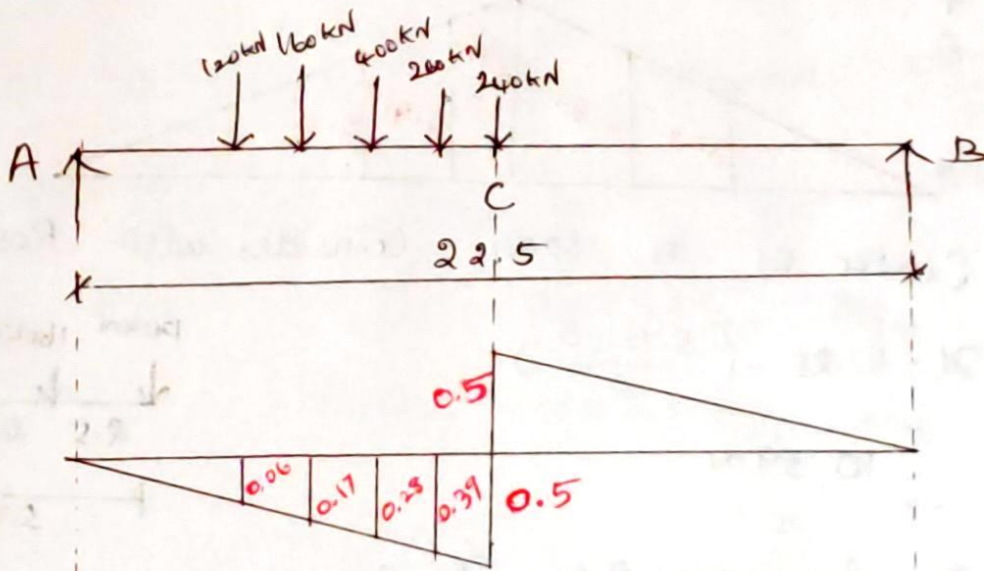 120kN 160kN 400kN 260kN 240kN
A B
C
22.5
0.5
0.06 0.17 0.28 0.39 0.5